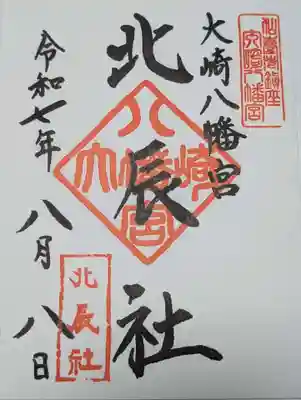 大崎八幡宮
北辰社
令和七年 八月 八日
八幡宮
大崎
北辰社